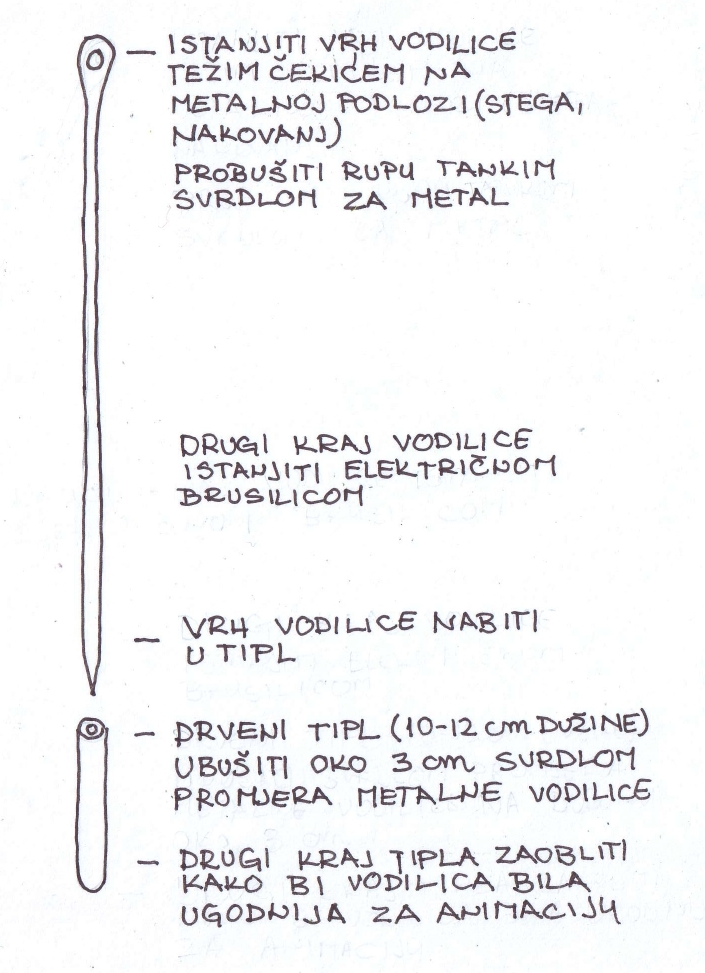 — ISTANJITI VRH VODILICE
TEŽIM ČEKIĆEM NA
METALNOJ PODLOZI (STEGA,
NAKOVANJ)
PROBUŠITI RUPU TANKIM
SVRDLOM ZA METAL
DRUGI KRAJ VODILICE
ISTANJITI ELEKTRIČNOM
BRUSILICOM
— VRH VODILICE NABITI
U TIPL
— DRVENI TIPL (10-12 cm DUŽINE)
UBUŠITI OKO 3 cm SVRDLOM
PROMJERA METALNE VODILICE
— DRUGI KRAJ TIPLA ZAOBLITI
KAKO BI VODILICA BILA
UGODNIJA ZA ANIMACIJU